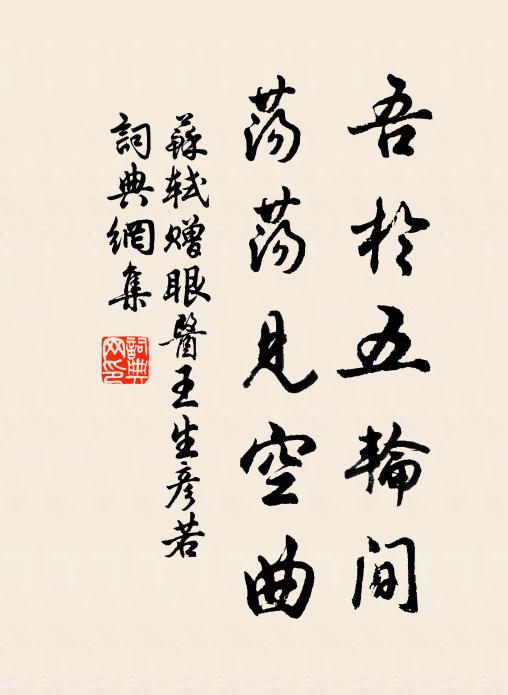 吾於五輪間
蕩蕩見空曲
蘇軾赠眼醫王生彦若
詞典網集
詞典
网印